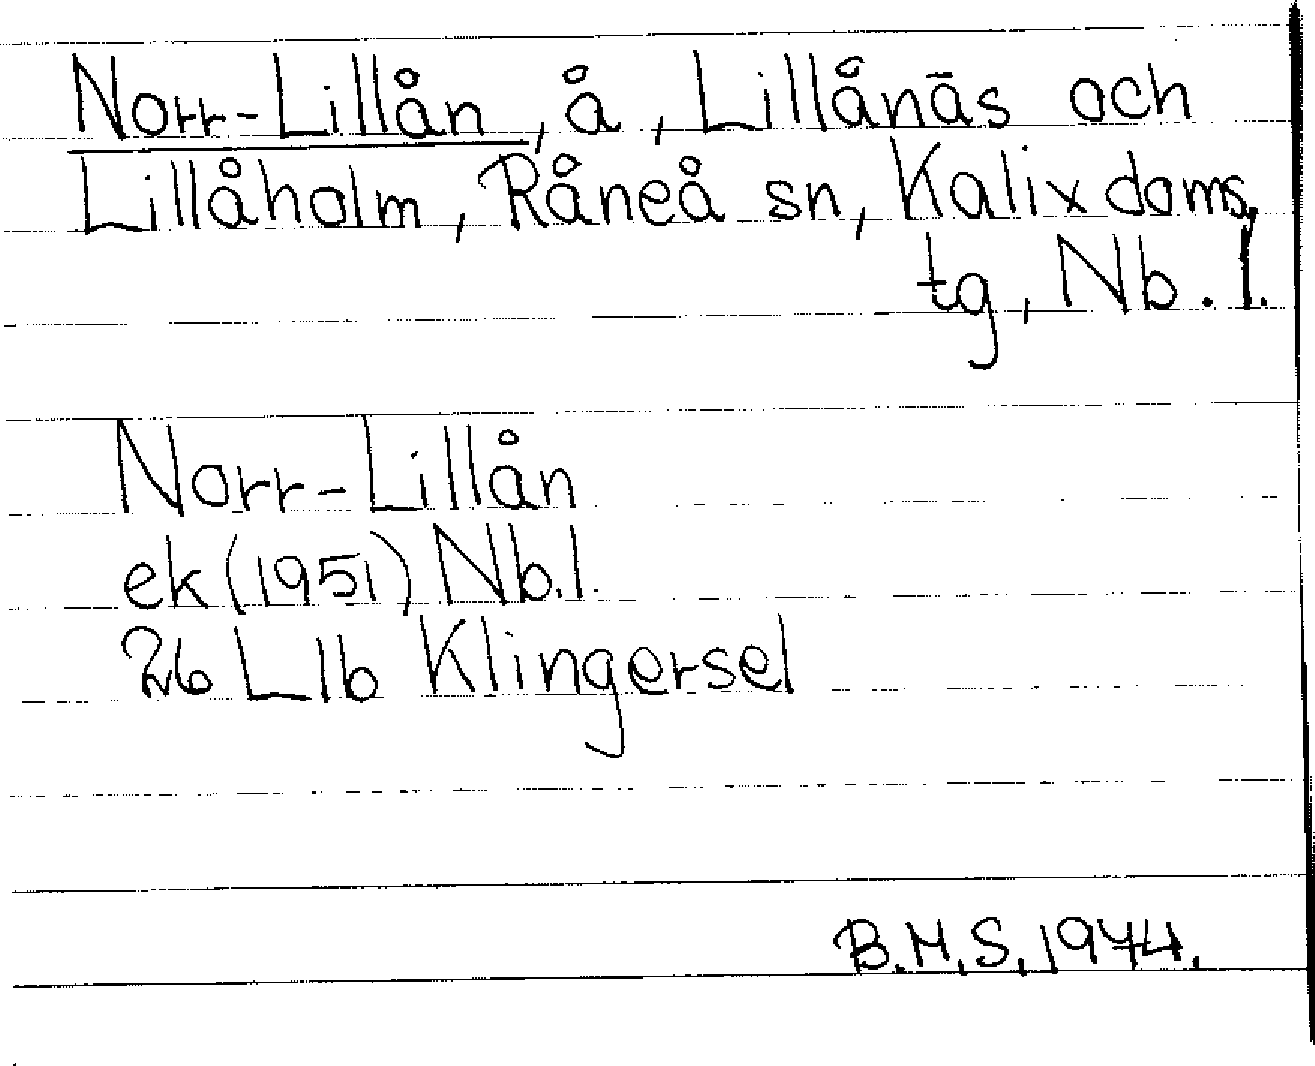 Norr-Lillån, å, Lillånäs och
Lillåholm, Råneå sn, Kalix doms.
tg, Nb. l.
Norr-Lillån
ek (1951) Nb.l.
26 L lb Klingersel
B.M.S. 1974.